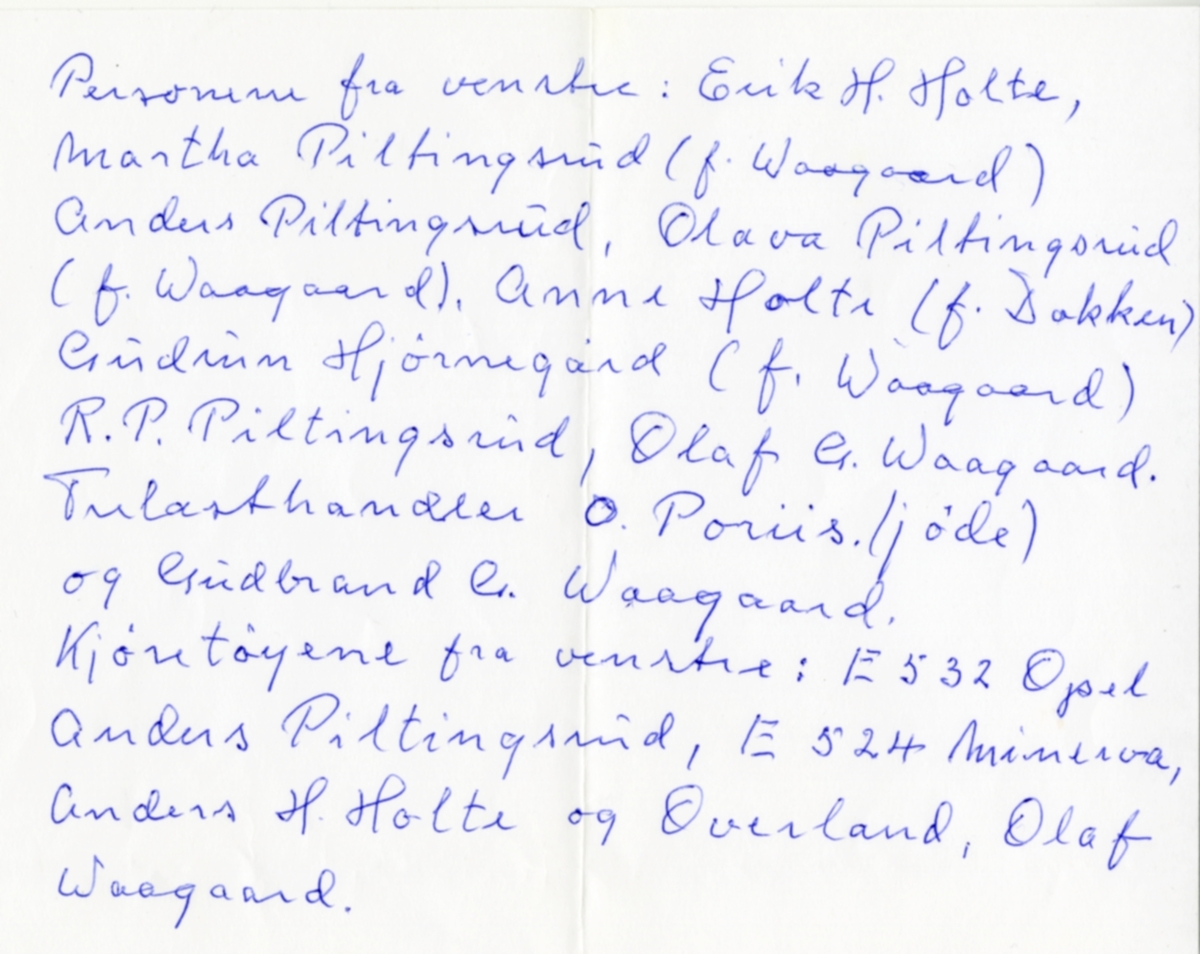 Personene fra venstre: Erik H. Holte,
Martha Piltingsrud (f. Waagaard)
Anders Piltingsrud, Olava Piltingsrud
(f. Waagaard), Anne Holte (f. Dokken)
Gudrun Hjørnegård (f. Waagaard)
R.P. Piltingsrud, Olaf G. Waagaard.
Trelasthandler O. Poriis. (jøde)
og Gudbrand G. Waagaard.
Kjøretøyene fra venstre: E 532 Opel
Anders Piltingsrud, E 524 Minerva,
Anders H. Holte og Overland, Olaf
Waagaard.